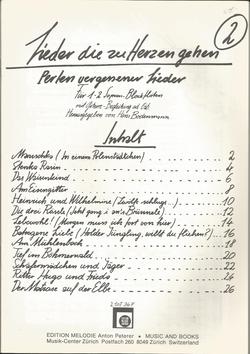 2
Lieder die zu Herzen gehen
Perlen vergessener Lieder
Für 1-2 Sopran-Blockflöten
mit Gitarre-Begleitung ad lib.
Herausgegeben von Hans Bodenmann
Inhalt
Maruschka (In einem Polenstädtchen) 2
Stenka Rasin 4
Das Waisenkind 6
Am Eisengitter 8
Heinrich und Wilhelmine (Zwölfe schlug's...) 10
Die drei Rösle (Jetzt gang i an's Brünnele) 12
Lebewohl! (Morgen muss ich fort von hier) 14
Betrogene Liebe (Holder Jüngling, willst du fliehen?) 16
Am Mühlenbach 18
Tief im Böhmerwald 20
Schäfermädchen und Jäger 22
Ritter Hugo und Hieda 24
Der Matrose auf der Elbe 26
EDITION MELODIE Anton Peterer • MUSIC AND BOOKS
Musik-Center Zürich Postfach 260 8049 Zürich Switzerland